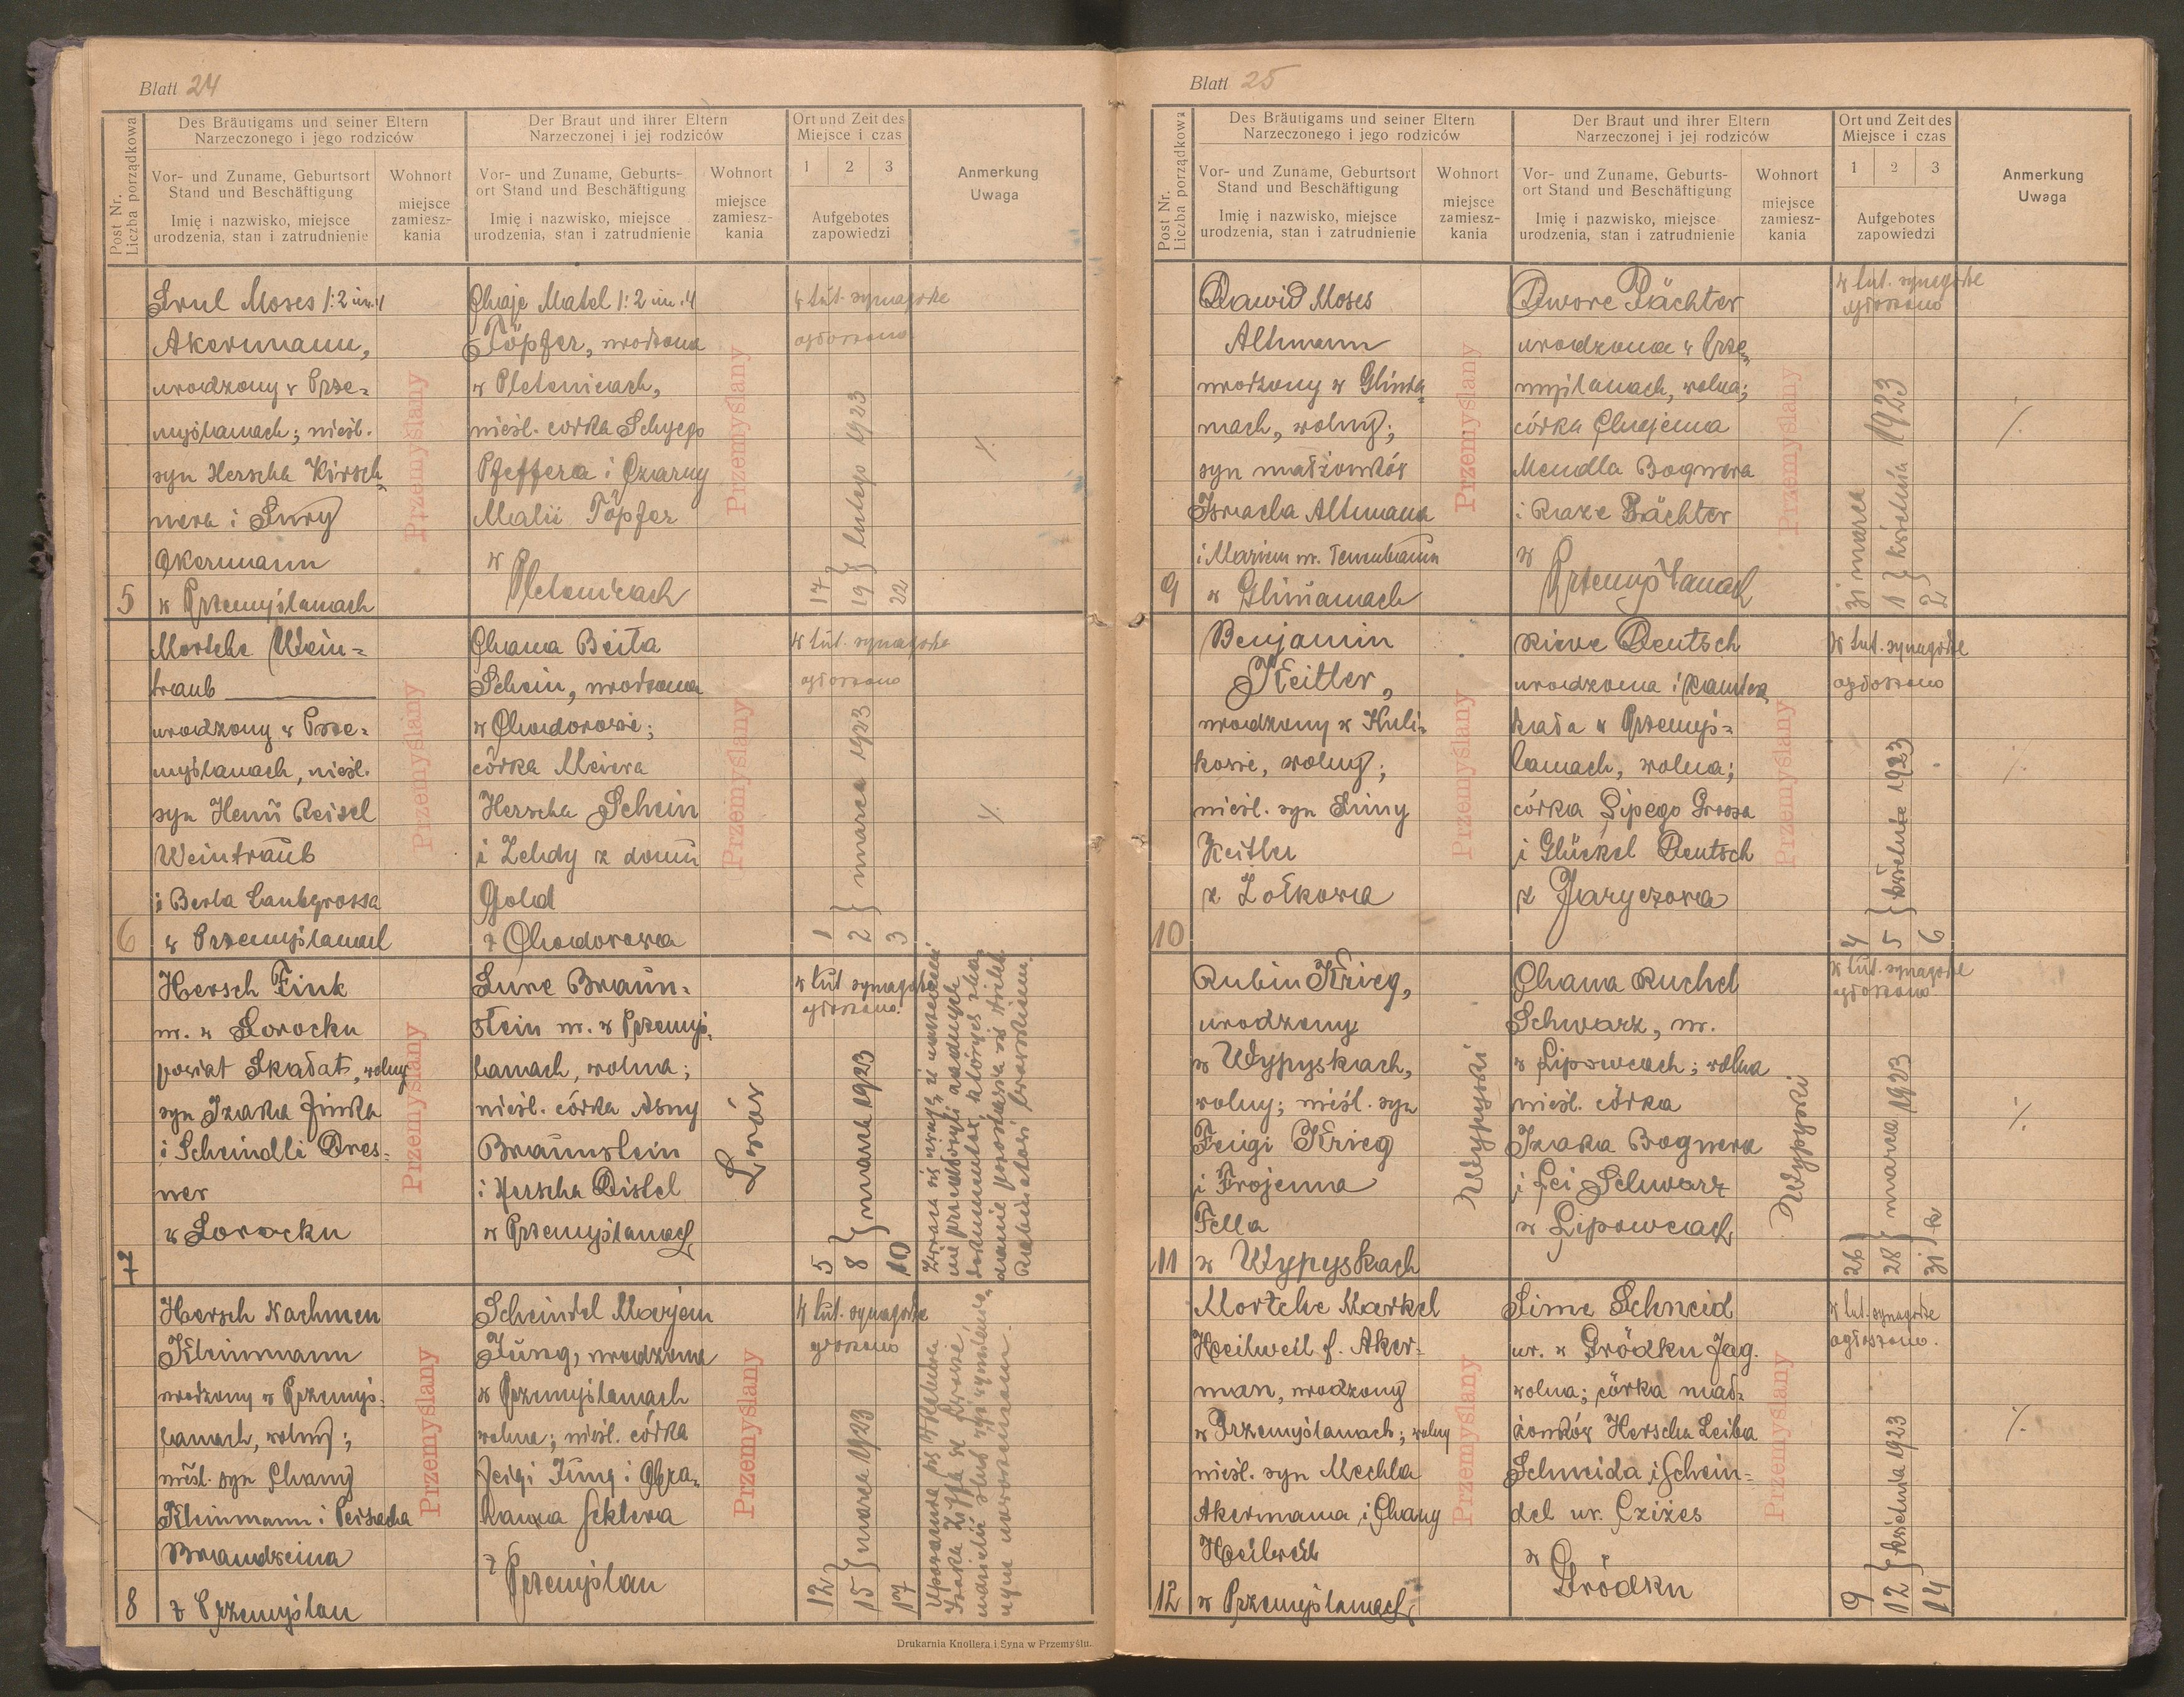 Blatt 24
Post Nr.
Liczba porządkowa
Des Bräutigams und seiner Eltern
Narzeczonego i jego rodziców
Vor- und Zuname, Geburtsort
Stand und Beschäftigung
Imię i nazwisko, miejsce
urodzenia, stan i zatrudnienie
Wohnort
miejsce
zamiesz-
kania
Der Braut und ihrer Eltern
Narzeczonej i jej rodziców
Vor- und Zuname, Geburts-
ort Stand und Beschäftigung
Imię i nazwisko, miejsce
urodzenia, stan i zatrudnienie
Wohnort
miejsce
zamiesz-
kania
Ort und Zeit des
Miejsce i czas
1 2 3
Aufgebotes
zapowiedzi
Anmerkung
Uwaga
5
Srul Moses /:2 im.:/
Akermann,
urodzony w Prze-
myślanach; nieśl.
syn Herscha Kirsch
nera i Sury
Akermann
w Przemyślanach
Przemyślany
Chaje Matel /:2 im.:/
Töpfer, urodzona
w Pletenicach,
nieśl. córka Schyego
Pfeffera i Czarny
Malii Töpfer
w
Pletenicach
Przemyślany
w tut. synagodze
ogłoszono
17
19 } lutego 1923
22
6
Mortche Wein-
traub
urodzony w Prze-
myślanach, nieśl.
syn Heni Reisel
Weintraub
i Berla Lautgrossa
w Przemyślanach
Przemyślany
Chana Beila
Schein, urodzona
w Chodorowie;
córka Meiera
Herscha Schein
i Zeldy z domu
Gold
z Chodorowa
Przemyślany
w tut. synagodze
ogłoszono
1
2 } marca 1923
3
7
Hersch Fink
ur. w Sorocku
powiat Skałat, wolny
syn Izaka Finka
i Scheindli Dres-
ner
w Sorocku
Przemyślany
Sure Braun-
stein ur. w Przemyś-
lanach, wolna;
nieśl. córka Asny
Braunstein
i Herscha Distel
w Przemyślanach
Lwów
w tut. synagodze
ogłoszono.
5
8 } marca 1923
10
8
Hersch Nachmen
Kleinmann
urodzony w Przemyś-
lanach, wolny;
nieśl. syn Chany
Kleinmann i Peisacha
Brandweina
z Przemyślan
Przemyślany
Scheindel Marjem
Jung, urodzona
w Przemyślanach
wolna; nieśl. córka
Feigi Jung i Abra-
hama Seklera
z
Przemyślan
Przemyślany
w tut. synagodze
ogłoszono
12
15 } marca 1923
17
Drukarnia Knollera i Syna w Przemyślu.
Blatt 25
Post Nr.
Liczba porządkowa
Des Bräutigams und seiner Eltern
Narzeczonego i jego rodziców
Vor- und Zuname, Geburtsort
Stand und Beschäftigung
Imię i nazwisko, miejsce
urodzenia, stan i zatrudnienie
Wohnort
miejsce
zamiesz-
kania
Der Braut und ihrer Eltern
Narzeczonej i jej rodziców
Vor- und Zuname, Geburts-
ort Stand und Beschäftigung
Imię i nazwisko, miejsce
urodzenia, stan i zatrudnienie
Wohnort
miejsce
zamiesz-
kania
Ort und Zeit des
Miejsce i czas
1 2 3
Aufgebotes
zapowiedzi
Anmerkung
Uwaga
9
Dawid Moses
Altmann
urodzony w Glinia
nach, wolny;
syn małżonków
Israela Altmana
i Mariem ur. Tenenbaum
w Glinianach
Przemyślany
Dwore Pächter
urodzona w Prze
myślanach, wolna;
córka Chajema
Mendla Bognera
i Raze Pächter
w
Przemyślanach
Przemyślany
w tut. synagodze
ogłoszono
31 marca
1 } kwietnia 1923
2
10
Benjamin
Keitler,
urodzony w Kuli-
kowie, wolny;
nieśl. syn Simy
Keitler
z Żołkowa
Przemyślany
Riwe Deutsch
urodzona i zamiesz
kała w Przemyś-
lanach, wolna;
córka Lipego Grossa
i Glückel Deutsch
z Jaryczowa
Przemyślany
w tut. synagodze
ogłoszono
4
5 } kwietnia 1923
6
11
Rubin Krieg,
urodzony
w Wypyskach,
wolny; nieśl. syn
Feigi Krieg
i Frojema
Fella
w Wypyskach
Wypyski
Chana Ruchel
Schwarz, ur.
w Lipowcach; wolna
nieśl. córka
Izaka Bognera
i Lei Schwarz
w Lipowcach
Wypyski
w tut. synagodze
ogłoszono.
26
28 } marca 1923
31
12
Mortche Markel
Heilweil f. Aker-
man, urodzony
w Przemyślanach; wolny
nieśl. syn Mechla
Akermana i Chany
Heilweil
w Przemyślanach
Przemyślany
Sime Schneid
ur. w Gródku Jag.
wolna; córka mał-
żonków Herscha Leiba
Schneida i Schein-
del ur. Cziżes
w
Gródku
Przemyślany
w tut. synagodze
ogłoszono.
9
12 } kwietnia 1923
14